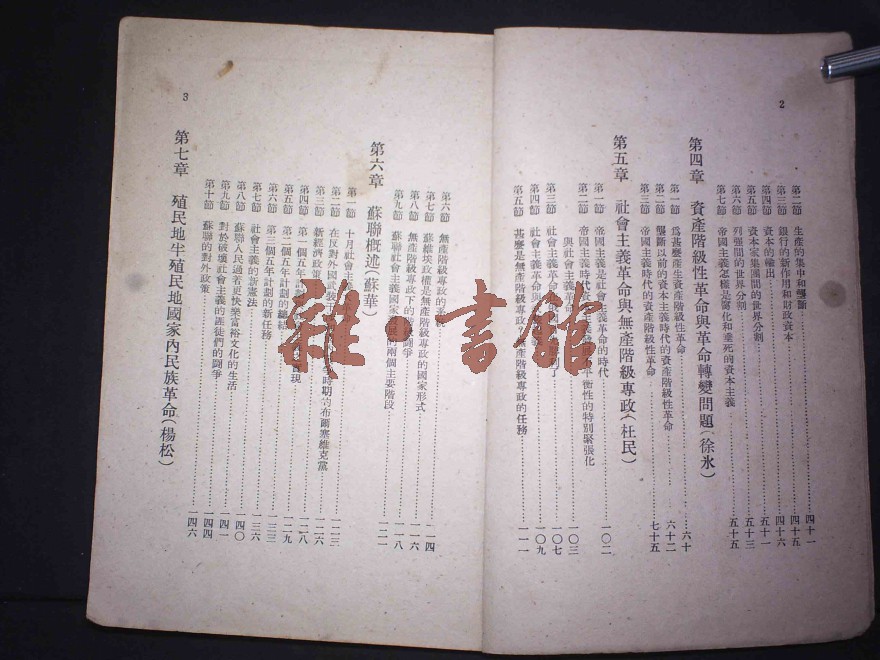 2
第二節 生產的集中和壟斷 四十一
第三節 銀行的新作用和財政資本 四十五
第四節 資本的輸出 四十六
第五節 資本家集團間的世界分割 五十一
第六節 列强間的世界分割 五十三
第七節 帝國主義怎樣是腐化和垂死的資本主義 五十五
第四章 資產階級性革命與革命轉變問題(徐氷)
第一節 爲甚麼產生資產階級性革命 六十
第二節 壟斷以前的資本主義時代的資產階級性革命 六十二
第三節 帝國主義時代的資產階級性革命 七十五
第五章 社會主義革命與無產階級專政(杜民)
第一節 帝國主義是社會主義革命的時代 一〇二
第二節 帝國主義時代
衡性的特別緊張化
與社會主義革命 一〇三
第三節 社會主義革命 一〇七
第四節 社會主義革命與 一〇九
第五節 甚麼是無產階級專政 無產階級專政的任務 一一一
3
第六節 無產階級專政的 一一四
第七節 蘇維埃政權是無產階級專政的國家形式 一一六
第八節 無產階級專政下的階級鬪爭
第九節 蘇聯社會主義國家發展的兩個主要階段 一一八
第六章 蘇聯概述(蘇華) 一二一
第一節 十月社會主義
第二節 在反對外國武裝干 時期的布爾塞維克黨 一二三
第三節 新經濟政策 一二六
第四節 第一個五年計劃 實現 一二八
第五節 第二個五年計劃的總結 一二九
第六節 第三個五年計劃的新任務 一三三
第七節 社會主義的新憲法 一三六
第八節 蘇聯人民過着更快樂富裕文化的生活 一四〇
第九節 對於破壞社會主義的匪徒們的鬪爭 一四一
第十節 蘇聯的對外政策 一四四
第七章 殖民地半殖民地國家內民族革命(楊松) 一四六
雜·書館